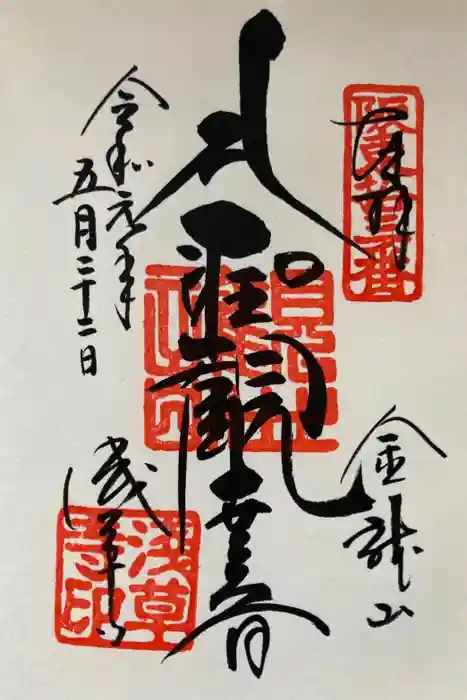 奉拝
坂東拾三番
金龍山
大聖観世音
令和元年
五月二十二日
浅草寺
浅草寺印